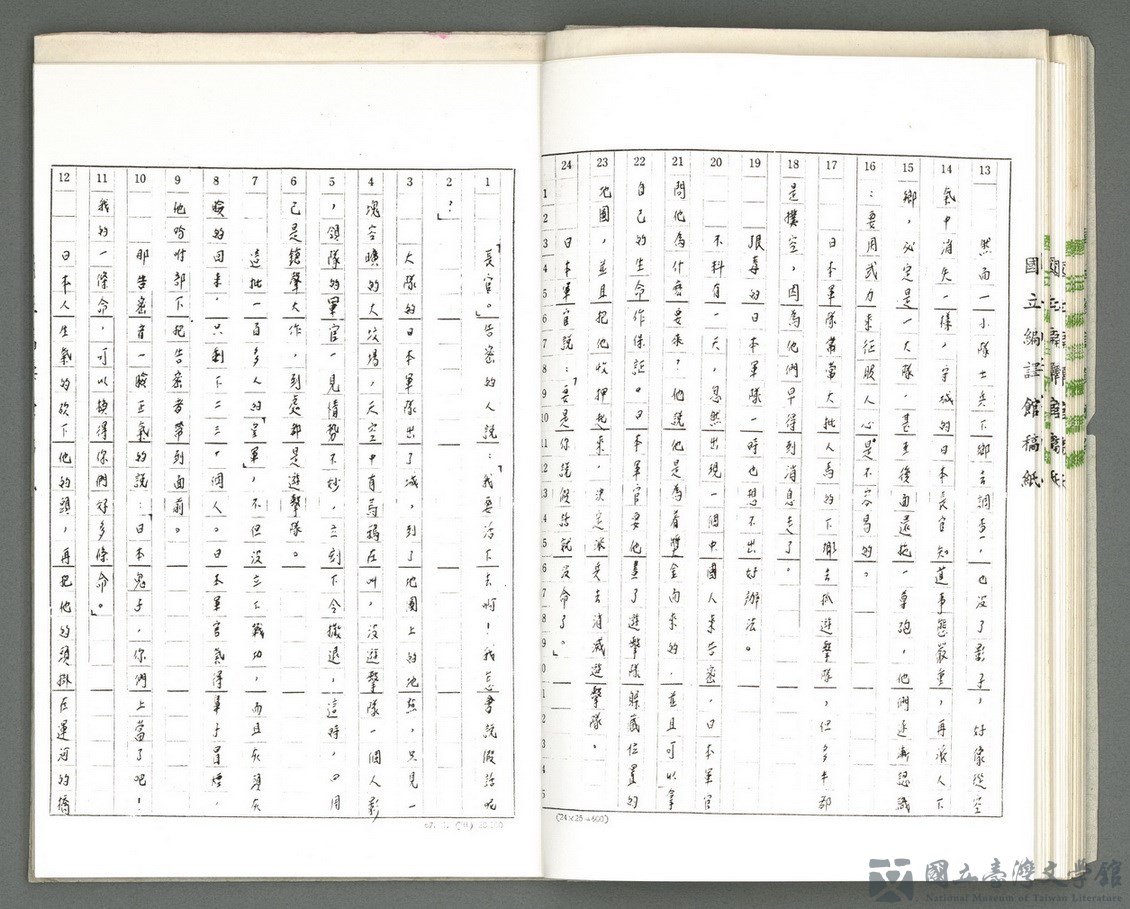 國立編譯館稿紙
13 然而一小隊士兵下鄉去調查,也沒了影子,好像從空
14 氣中消失一樣,守城的日本長官知道事態嚴重,再派人下
15 鄉,必定是一大隊,甚至後面還拖一尊砲,他們逐漸認識
16 :要用武力來征服人心是不容易的。
17 日本軍隊常常大批人馬的下鄉去抓遊擊隊,但多半都
18 是撲空,因為他們早得到消息走了。
19 狠毒的日本軍隊一時也想不出好辦法。
20 不料有一天,忽然出現一個中國人來告密,日本軍官
21 問他為什麼要來?他說他是為着獎金而來的,並且可以拿
22 自己的生命作保証。日本軍官要他畫了遊擊隊躲藏位置的
23 地圖,並且把他收押起來,決定派兵去消滅遊擊隊。
24 日本軍官說:「要是你說假話就沒命了。」
(24×25=600)
1 「長官。」告密的人說:「我要活下去啊!我怎會說假話呢
2 ?」
3 大隊的日本軍隊出了城,到了地圖上的地點,只見一
4 塊空曠的大坟場,天空中有烏鴉在叫,沒遊擊隊一個人影
5 ,領隊的軍官一見情勢不妙,立刻下令撤退,這時,四周
6 已是鎗聲大作,到處都是遊擊隊。
7 這批一百多人的「皇軍」,不但沒立下戰功,而且灰頭灰
8 臉的回來,只剩下二三十個人。日本軍官氣得鼻子冒煙,
9 他吩咐部下把告密者帶到面前。
10 那告密者一臉正氣的說:「日本鬼子,你們上當了吧!
11 我的一條命,可以換得你們好多條命。」
12 日本人生氣的砍下他的頭,再把他的頭掛在運河的橋
國立臺灣文學館
National Museum of Taiwan Literature